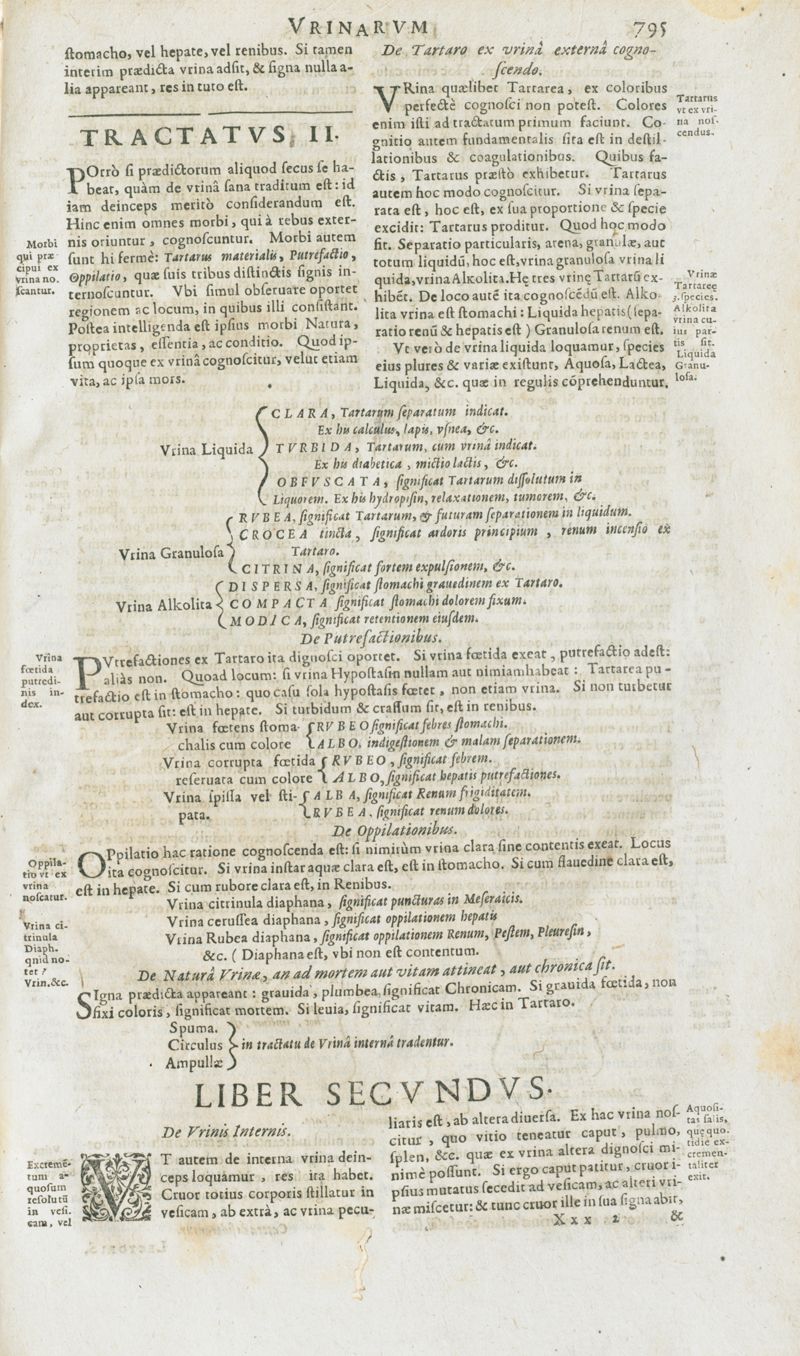 VRINARVM 795
ſtomacho, vel hepate, vel renibus. Si tamen
interim prædicta vrina adſit, & ſigna nulla a-
lia appareant, res in tuto eſt.
TRACTATVS II.
POrrò ſi prædictorum aliquod ſecus ſe ha-
beat, quàm de vrinâ ſana traditum eſt: id
iam deinceps meritò conſiderandum eſt.
Hinc enim omnes morbi, qui à rebus exter-
nis oriuntur, cognoſcuntur. Morbi autem
ſunt hi fermè: Tartarus materialis, Putrefactio,
Oppilatio, quæ ſuis tribus diſtinctis ſignis in-
ternoſcuntur. Vbi ſimul obſeruare oportet
regionem ac locum, in quibus illi conſiſtant.
Poſtea intelligenda eſt ipſius morbi Natura,
proprietas, eſſentia, ac conditio. Quod ip-
ſum quoque ex vrinâ cognoſcitur, velut etiam
vita, ac ipſa mors.
Morbi
qui præ-
cipui ex
vrina no-
ſcantur.
De Tartaro ex vrinâ externâ cogno-
ſcendo.
VRina quælibet Tartarea, ex coloribus
perfectè cognoſci non poteſt. Colores
enim iſti ad tractatum primum faciunt. Co-
gnitio autem fundamentalis ſita eſt in deſtil-
lationibus & coagulationibus. Quibus fa-
ctis, Tartarus præſtò exhibetur. Tartarus
autem hoc modo cognoſcitur. Si vrina ſepa-
rata eſt, hoc eſt, ex ſua proportione & ſpecie
excidit: Tartarus proditur. Quod hoc modo
fit. Separatio particularis, arena, granulæ, aut
totum liquidū, hoc eſt, vrina granuloſa vrina li
quida, vrina Alkolita. Hę tres vrinę Tartarū ex-
hibēt. De loco autē ita cognoſcēdū eſt. Alko-
lita vrina eſt ſtomachi: Liquida hepatis (ſepa-
ratio renū & hepatis eſt) Granuloſa renum eſt.
Vt verò de vrina liquida loquamur, ſpecies
eius plures & variæ exiſtunt, Aquoſa, Lactea,
Liquida, &c. quæ in regulis cōprehenduntur.
Tartarus
vt ex vri-
na noſ-
cendus.
Vrinæ
Tartareę
3. ſpecies.
Alkolita
vrina cu-
ius par-
tis ſit.
Liquida
Granu-
loſa.
Vrina Liquida
CLARA, Tartarum ſeparatum indicat.
Ex his calculus, lapis, vſnea, &c.
TVRBIDA, Tartarum, cum vrinâ indicat.
Ex his diabetica, mictio lactis, &c.
OBFVSCATA, ſignificat Tartarum diſſolutum in
Liquorem. Ex his hydropiſin, relaxationem, tumorem, &c.
Vrina Granuloſa
RVBEA, ſignificat Tartarum, & futuram ſeparationem in liquidum.
CROCEA tincta, ſignificat ardoris principium, renum incenſio ex
Tartaro.
CITRINA, ſignificat fortem expulſionem, &c.
Vrina Alkolita
DISPERSA, ſignificat ſtomachi grauedinem ex Tartaro.
COMPACTA ſignificat ſtomachi dolorem fixum.
MODICA, ſignificat retentionem eiuſdem.
De Putrefactionibus.
PVtrefactiones ex Tartaro ita dignoſci oportet. Si vrina fœtida exeat, putrefactio adeſt:
aliàs non. Quoad locum: ſi vrina Hypoſtaſin nullam aut nimiam habeat: Tartarea pu-
trefactio eſt in ſtomacho: quo caſu ſola hypoſtaſis fœtet, non etiam vrina. Si non turbetur
aut corrupta ſit: eſt in hepate. Si turbidum & craſſum ſit, eſt in renibus.
Vrina
fœtida
putredi-
nis in-
dex.
Vrina fœtens ſtoma-
chalis cum colore
RVBEO ſignificat febres ſtomachi.
ALBO, indigeſtionem & malam ſeparationem.
Vrina corrupta fœtida
reſeruata cum colore
RVBEO, ſignificat febrem.
ALBO, ſignificat hepatis putrefactiones.
Vrina ſpiſſa vel ſti-
pata.
ALBA, ſignificat Renum frigiditatem.
RVBEA, ſignificat renum dolores.
De Oppilationibus.
OPpilatio hac ratione cognoſcenda eſt: ſi nimirùm vrina clara ſine contentis exeat. Locus
ita cognoſcitur. Si vrina inſtar aquæ clara eſt, eſt in ſtomacho. Si cum flauedine clara eſt,
eſt in hepate. Si cum rubore clara eſt, in Renibus.
Oppila-
tio vt ex
vrina
noſcatur.
Vrina citrinula diaphana, ſignificat puncturas in Meſeraicis.
Vrina ceruſſea diaphana, ſignificat oppilationem hepatis
Vrina Rubea diaphana, ſignificat oppilationem Renum, Peſtem, Pleureſin,
&c. (Diaphana eſt, vbi non eſt contentum.
Vrina ci-
trinula
Diaph.
quid no-
tet?
Vrin. &c.
De Naturâ Vrinæ, an ad mortem aut vitam attineat, aut chronica ſit.
SIgna prædicta appareant: grauida, plumbea, ſignificat Chronicam. Si grauida fœtida, non
fixi coloris, ſignificat mortem. Si leuia, ſignificat vitam. Hæc in Tartaro.
Spuma.
Circulus
Ampullæ
in tractatu de Vrinâ internâ tradentur.
LIBER SECVNDVS.
De Vrinis Internis.
VT autem de interna vrina dein-
ceps loquamur, res ita habet.
Cruor totius corporis ſtillatur in
veſicam, ab extrà, ac vrina pecu-
Excremē-
tum a-
quoſum
reſolutū
in veſi-
cam, vel
liaris eſt, ab altera diuerſa. Ex hac vrina noſ-
citur, quo vitio teneatur caput, pulmo,
ſplen, &c. quæ ex vrina altera dignoſci mi-
nimè poſſunt. Si ergo caput patitur, cruor i-
pſius mutatus ſecedit ad veſicam, ac alteri vri-
næ miſcetur: & tunc cruor ille in ſua ſigna abit,
Aquoſi-
tas ſalis,
quę quo-
tidie ex-
cremen-
taliter
exit.
Xxx 2 &